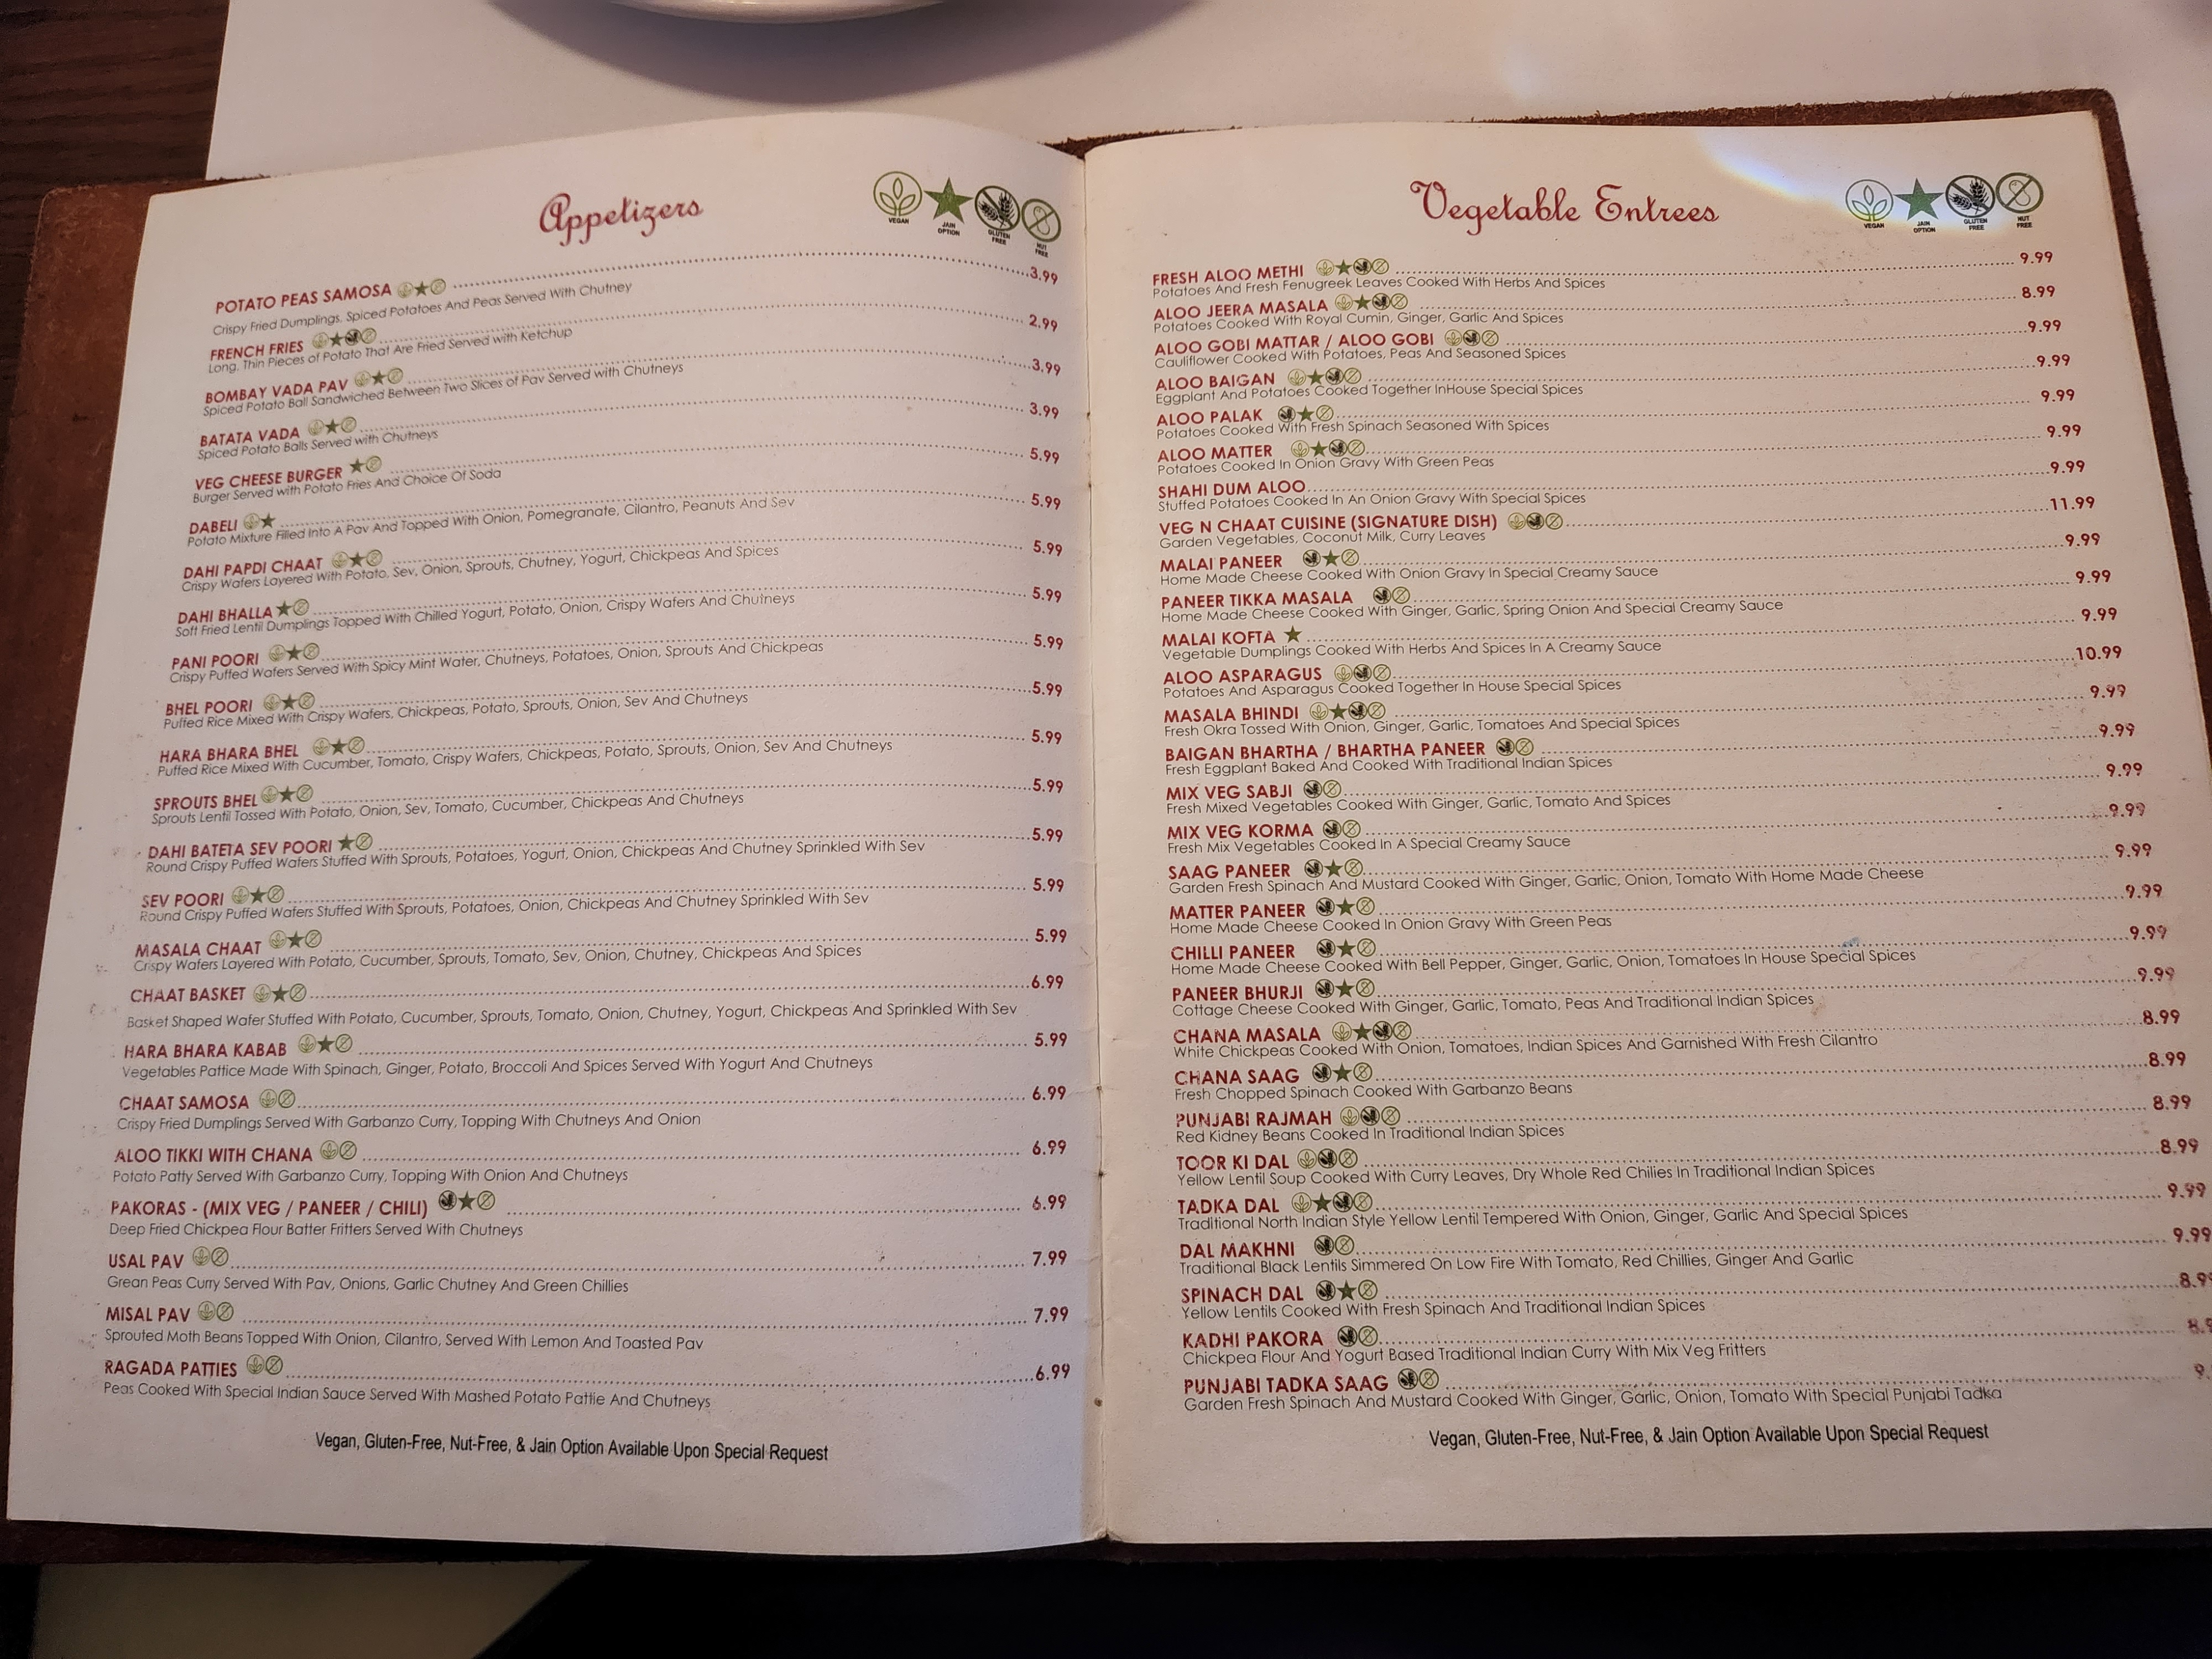 Appetizers
VEGAN
JAIN OPTION
GLUTEN FREE
NUT FREE
POTATO PEAS SAMOSA 3.99
Crispy Fried Dumplings. Spiced Potatoes And Peas Served With Chutney
FRENCH FRIES 2.99
Long, Thin Pieces of Potato That Are Fried Served with Ketchup
BOMBAY VADA PAV 3.99
Spiced Potato Ball Sandwiched Between Two Slices of Pav Served with Chutneys
BATATA VADA 3.99
Spiced Potato Balls Served with Chutneys
VEG CHEESE BURGER 5.99
Burger Served with Potato Fries And Choice Of Soda
DABELI 5.99
Potato Mixture Filled Into A Pav And Topped With Onion, Pomegranate, Cilantro, Peanuts And Sev
DAHI PAPDI CHAAT 5.99
Crispy Wafers Layered With Potato, Sev, Onion, Sprouts, Chutney, Yogurt, Chickpeas And Spices
DAHI BHALLA 5.99
Soft Fried Lentil Dumplings Topped With Chilled Yogurt, Potato, Onion, Crispy Wafers And Chutneys
PANI POORI 5.99
Crispy Puffed Wafers Served With Spicy Mint Water, Chutneys, Potatoes, Onion, Sprouts And Chickpeas
BHEL POORI 5.99
Puffed Rice Mixed With Crispy Wafers, Chickpeas, Potato, Sprouts, Onion, Sev And Chutneys
HARA BHARA BHEL 5.99
Puffed Rice Mixed With Cucumber, Tomato, Crispy Wafers, Chickpeas, Potato, Sprouts, Onion, Sev And Chutneys
SPROUTS BHEL 5.99
Sprouts Lentil Tossed With Potato, Onion, Sev, Tomato, Cucumber, Chickpeas And Chutneys
DAHI BATETA SEV POORI 5.99
Round Crispy Puffed Wafers Stuffed With Sprouts, Potatoes, Yogurt, Onion, Chickpeas And Chutney Sprinkled With Sev
SEV POORI 5.99
Round Crispy Puffed Wafers Stuffed With Sprouts, Potatoes, Onion, Chickpeas And Chutney Sprinkled With Sev
MASALA CHAAT 5.99
Crispy Wafers Layered With Potato, Cucumber, Sprouts, Tomato, Sev, Onion, Chutney, Chickpeas And Spices
CHAAT BASKET 6.99
Basket Shaped Wafer Stuffed With Potato, Cucumber, Sprouts, Tomato, Onion, Chutney, Yogurt, Chickpeas And Sprinkled With Sev
HARA BHARA KABAB 5.99
Vegetables Pattice Made With Spinach, Ginger, Potato, Broccoli And Spices Served With Yogurt And Chutneys
CHAAT SAMOSA 6.99
Crispy Fried Dumplings Served With Garbanzo Curry, Topping With Chutneys And Onion
ALOO TIKKI WITH CHANA 6.99
Potato Patty Served With Garbanzo Curry, Topping With Onion And Chutneys
PAKORAS - (MIX VEG / PANEER / CHILI) 6.99
Deep Fried Chickpea Flour Batter Fritters Served With Chutneys
USAL PAV 7.99
Grean Peas Curry Served With Pav, Onions, Garlic Chutney And Green Chillies
MISAL PAV 7.99
Sprouted Moth Beans Topped With Onion, Cilantro, Served With Lemon And Toasted Pav
RAGADA PATTIES 6.99
Peas Cooked With Special Indian Sauce Served With Mashed Potato Pattie And Chutneys
Vegan, Gluten-Free, Nut-Free, & Jain Option Available Upon Special Request
Vegetable Entrees
VEGAN
JAIN OPTION
GLUTEN FREE
NUT FREE
FRESH ALOO METHI 9.99
Potatoes And Fresh Fenugreek Leaves Cooked With Herbs And Spices
ALOO JEERA MASALA 8.99
Potatoes Cooked With Royal Cumin, Ginger, Garlic And Spices
ALOO GOBI MATTAR / ALOO GOBI 9.99
Cauliflower Cooked With Potatoes, Peas And Seasoned Spices
ALOO BAIGAN 9.99
Eggplant And Potatoes Cooked Together InHouse Special Spices
ALOO PALAK 9.99
Potatoes Cooked With Fresh Spinach Seasoned With Spices
ALOO MATTER 9.99
Potatoes Cooked In Onion Gravy With Green Peas
SHAHI DUM ALOO 9.99
Stuffed Potatoes Cooked In An Onion Gravy With Special Spices
VEG N CHAAT CUISINE (SIGNATURE DISH) 11.99
Garden Vegetables, Coconut Milk, Curry Leaves
MALAI PANEER 9.99
Home Made Cheese Cooked With Onion Gravy In Special Creamy Sauce
PANEER TIKKA MASALA 9.99
Home Made Cheese Cooked With Ginger, Garlic, Spring Onion And Special Creamy Sauce
MALAI KOFTA 9.99
Vegetable Dumplings Cooked With Herbs And Spices In A Creamy Sauce
ALOO ASPARAGUS 10.99
Potatoes And Asparagus Cooked Together In House Special Spices
MASALA BHINDI 9.99
Fresh Okra Tossed With Onion, Ginger, Garlic, Tomatoes And Special Spices
BAIGAN BHARTHA / BHARTHA PANEER 9.99
Fresh Eggplant Baked And Cooked With Traditional Indian Spices
MIX VEG SABJI 9.99
Fresh Mixed Vegetables Cooked With Ginger, Garlic, Tomato And Spices
MIX VEG KORMA 9.99
Fresh Mix Vegetables Cooked In A Special Creamy Sauce
SAAG PANEER 9.99
Garden Fresh Spinach And Mustard Cooked With Ginger, Garlic, Onion, Tomato With Home Made Cheese
MATTER PANEER 9.99
Home Made Cheese Cooked In Onion Gravy With Green Peas
CHILLI PANEER 9.99
Home Made Cheese Cooked With Bell Pepper, Ginger, Garlic, Onion, Tomatoes In House Special Spices
PANEER BHURJI 9.99
Cottage Cheese Cooked With Ginger, Garlic, Tomato, Peas And Traditional Indian Spices
CHANA MASALA 8.99
White Chickpeas Cooked With Onion, Tomatoes, Indian Spices And Garnished With Fresh Cilantro
CHANA SAAG 8.99
Fresh Chopped Spinach Cooked With Garbanzo Beans
PUNJABI RAJMAH 8.99
Red Kidney Beans Cooked In Traditional Indian Spices
TOOR KI DAL 8.99
Yellow Lentil Soup Cooked With Curry Leaves, Dry Whole Red Chilies In Traditional Indian Spices
TADKA DAL 9.99
Traditional North Indian Style Yellow Lentil Tempered With Onion, Ginger, Garlic And Special Spices
DAL MAKHNI 9.99
Traditional Black Lentils Simmered On Low Fire With Tomato, Red Chillies, Ginger And Garlic
SPINACH DAL 8.9
Yellow Lentils Cooked With Fresh Spinach And Traditional Indian Spices
KADHI PAKORA 8.
Chickpea Flour And Yogurt Based Traditional Indian Curry With Mix Veg Fritters
PUNJABI TADKA SAAG 9.
Garden Fresh Spinach And Mustard Cooked With Ginger, Garlic, Onion, Tomato With Special Punjabi Tadka
Vegan, Gluten-Free, Nut-Free, & Jain Option Available Upon Special Request